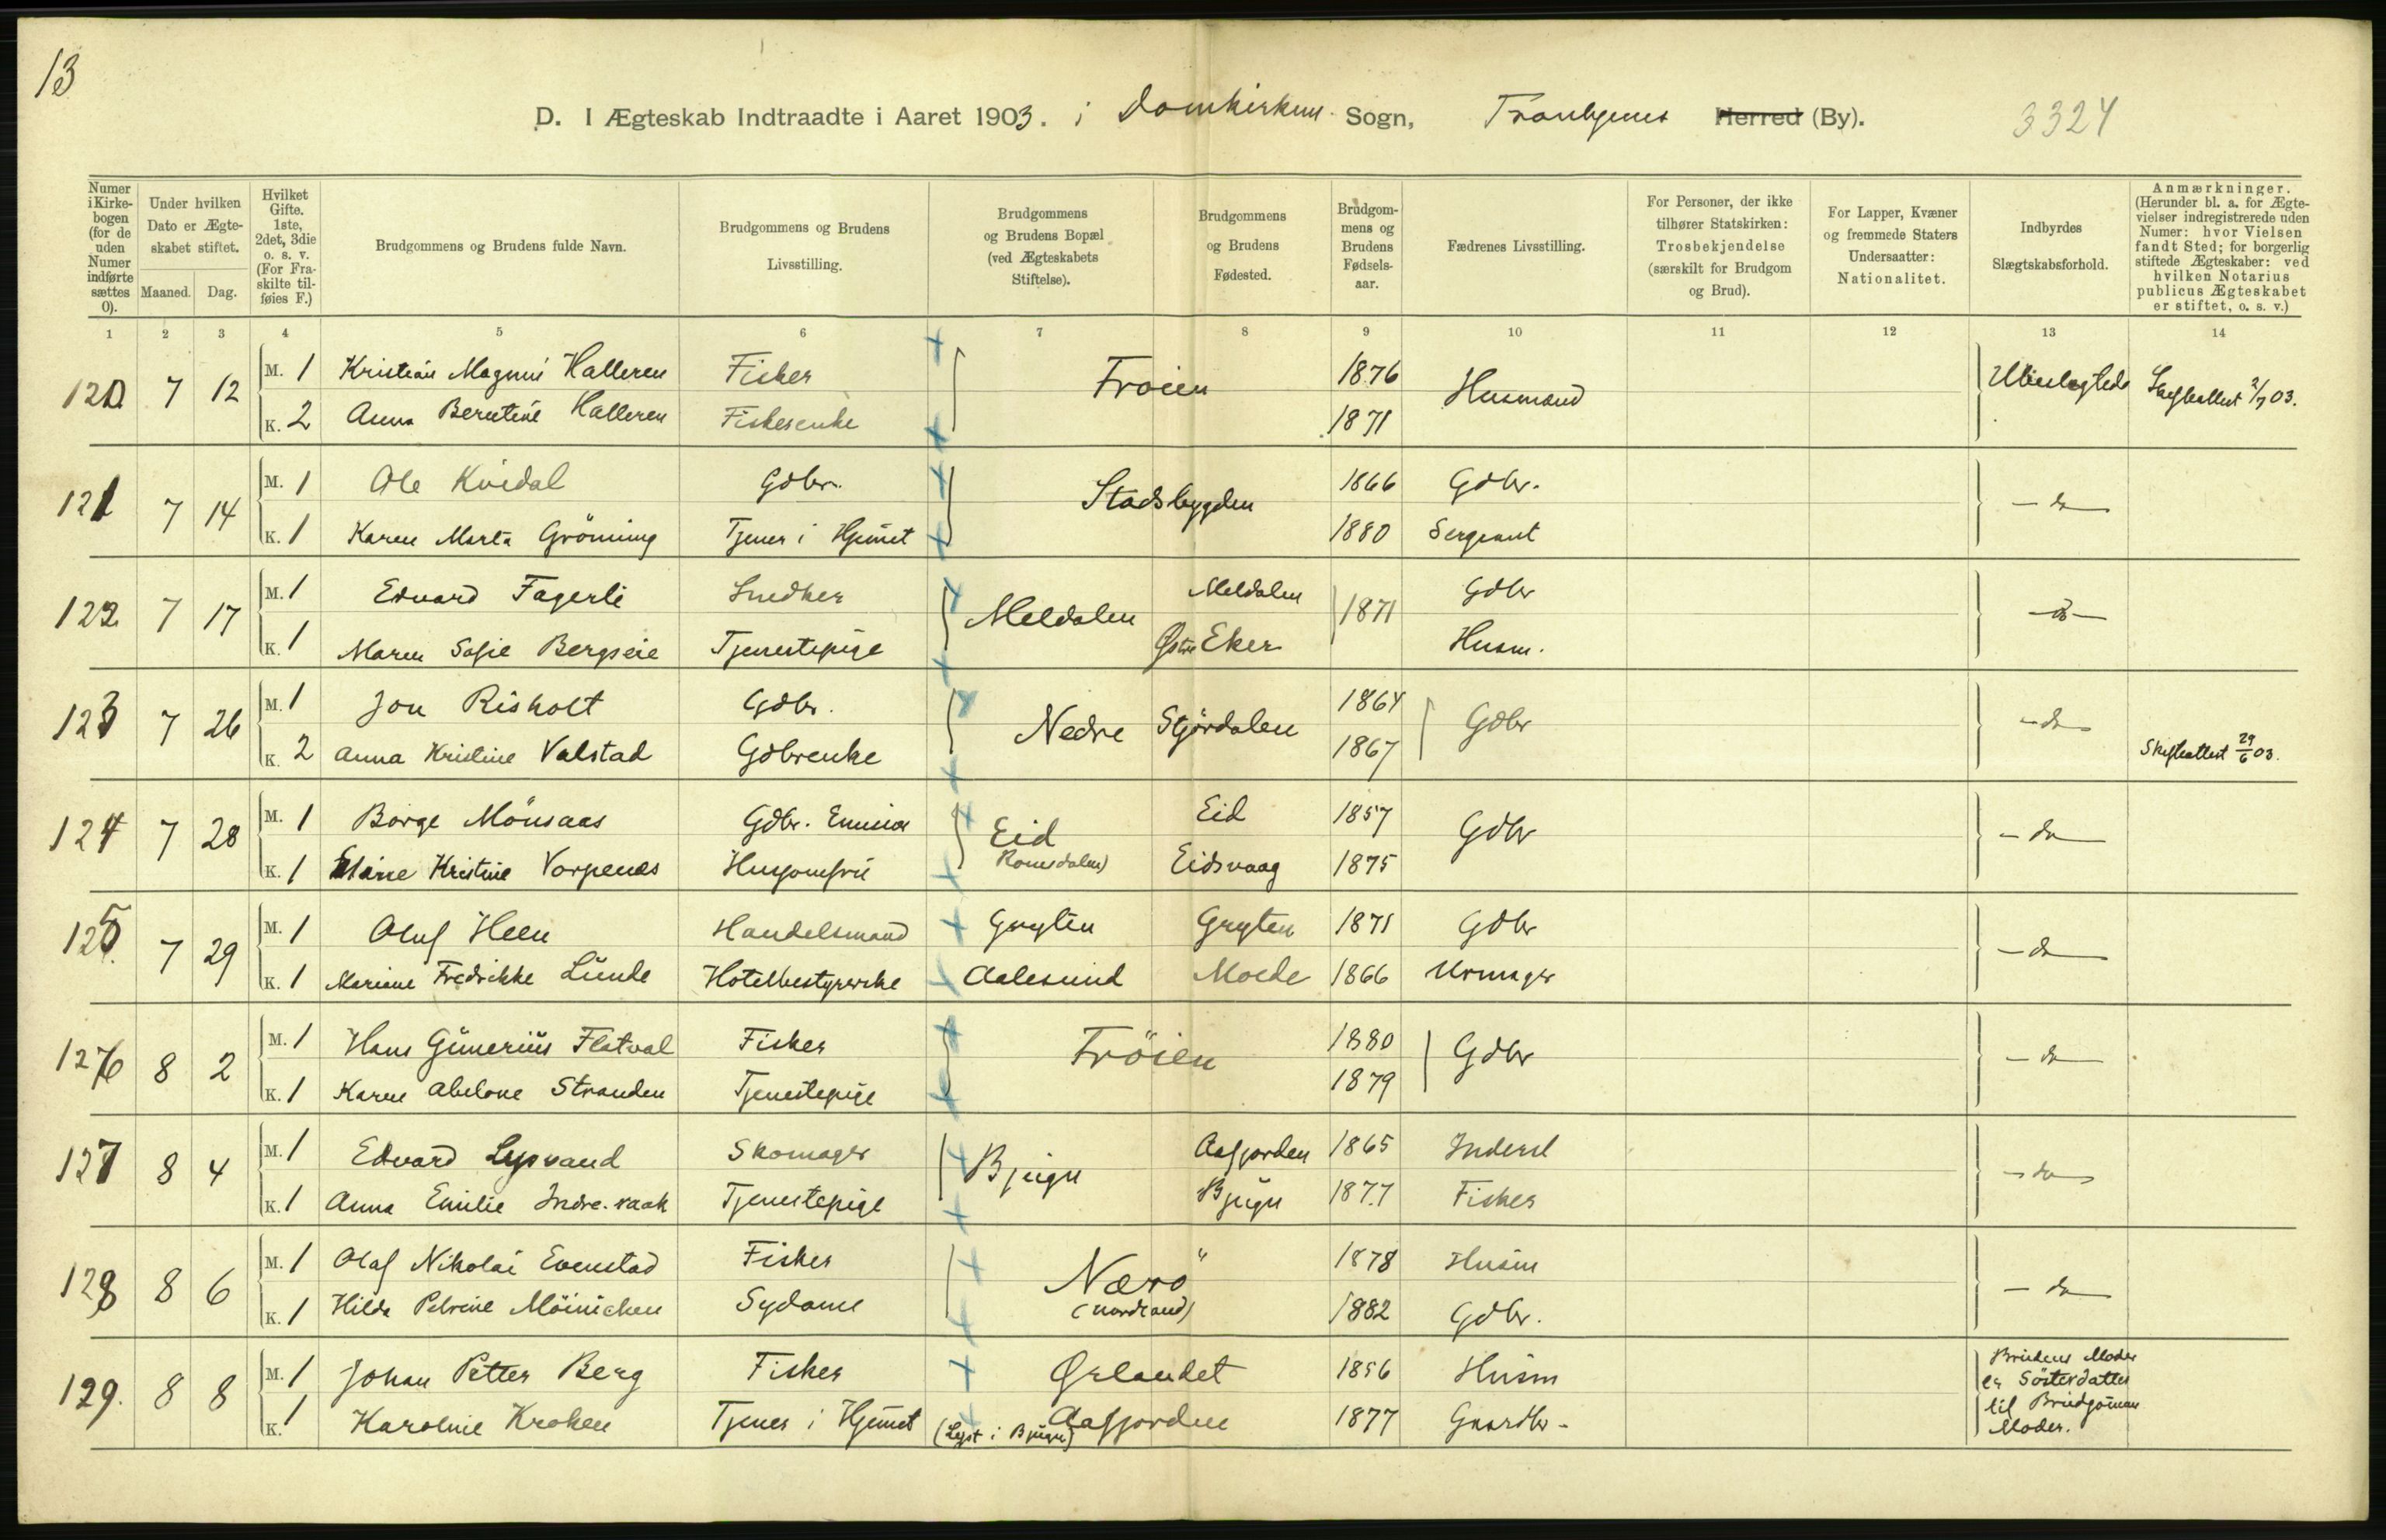 13
D. I Ægteskab Indtraadte i Aaret 1903. i Domkirken Sogn, Trondhjems Herred (By). 3324
Numer i Kirkebogen (for de uden Numer indførte sættes 0).
Under hvilken Dato er Ægteskabet stiftet.
Maaned. Dag.
Hvilket Gifte. 1ste, 2det, 3die o. s. v. (For Fraskilte tilføies F.)
Brudgommens og Brudens fulde Navn.
Brudgommens og Brudens Livsstilling.
Brudgommens og Brudens Bopæl (ved Ægteskabets Stiftelse).
Brudgommens og Brudens Fødested.
Brudgommens og Brudens Fødselsaar.
Fædrenes Livsstilling.
For Personer, der ikke tilhører Statskirken: Trosbekjendelse (særskilt for Brudgom og Brud).
For Lapper, Kvæner og fremmede Staters Undersaatter: Nationalitet.
Indbyrdes Slægtskabsforhold.
Anmærkninger. (Herunder bl. a. for Ægtevielser indregistrerede uden Numer: hvor Vielsen fandt Sted; for borgerlig stiftede Ægteskaber: ved hvilken Notarius publicus Ægteskabet er stiftet, o. s. v.)
1 2 3 4 5 6 7 8 9 10 11 12 13 14
120 7 12 M. 1 Kristian Magnus Halleren Fisker Froien 1876 Husmand Ubeslægtede Skifteattest 2/7 03.
K. 2 Anna Berntine Halleren Fiskerenke 1871
121 7 14 M. 1 Ole Kvidal Gdbr. Stadsbygden 1866 Gdbr. - do
K. 1 Karen Marta Gröning Tjener i Hjemet 1880 Sergeant
122 7 17 M. 1 Edvard Fagerli Snedker Meldalen Meldalen 1871 Gdbr - do -
K. 1 Maren Sofie Bergseie Tjenestepige Østre Eker Husm.
123 7 26 M. 1 Jon Risholt Gdbr. Nedre Stjördalen 1864 Gdbr - do
K. 2 Anna Kristine Valstad Gdbrenke 1867 Skifteattest 29/6 03.
124 7 28 M. 1 Borge Mönsaas Gdbr. Eid Eid 1857 Gdbr - do
K. 1 Kristine Vorpenes Husjomfru Romsdalen) Eidsvaag 1875
125. 7 29 M. 1 Oluf Heen Handelsmand Gryten Gryten 1871 Gdbr - do
K. 1 Mariane Fredrikke Lunde Hotelbestyrerske Aalesund Molde 1866 Urmager
126 8 2 M. 1 Hans Gunerius Flatval Fisker Fröien 1880 Gdbr - do
K. 1 Karen Abelone Stranden Tjenestepige 1879
127 8 4 M. 1 Edvard Lysvand Skomager Bjugn Aafjorden 1865 Inderst - do
K. 1 Anna Emilie Indre-vaak Tjenestepige Bjugn 1877 Fisker
128 8 6 M. 1 Olaf Nikolai Evenstad Fisker Nærö 1878 Husm - do
K. 1 Hilda Petrine Möinichen Sydame (Nordland) 1882 Gdbr.
129. 8 8 M. 1 Johan Petter Berg Fisker Ørlandet 1856 Husm Brudens Moder
er Sösterdatter
K. 1 Karoline Kroken Tjener i Hjemet (Lyst i Bjugn) Aafjorden 1877 Gaardbr- til Brudgommens
Moder.